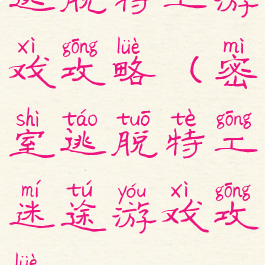 逃脱特工游
xì gōng lüè mì
戏攻略（密
shì táo tuō tè gōng
室逃脱特工
mí tú yóu xì gōng
迷途游戏攻
lüè